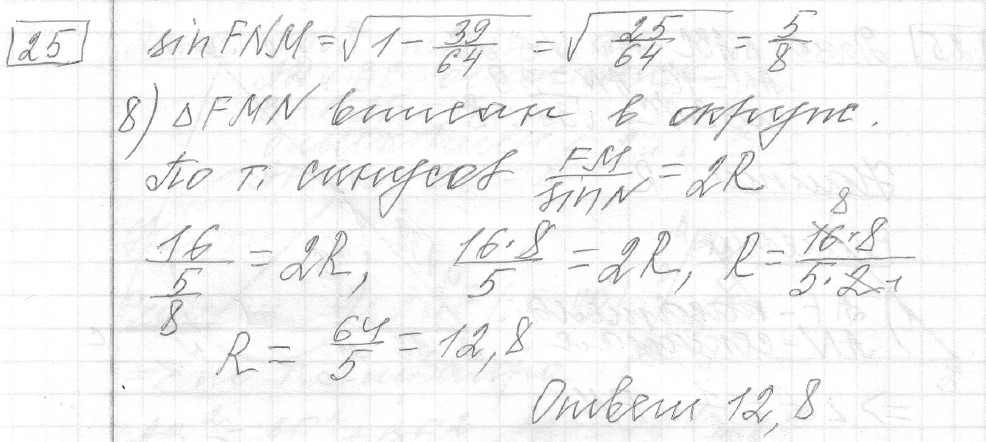 25 sinFNM = √(1 - 39/64) = √(25/64) = 5/8
8) △FMN вписан в окруж.
По т. синусов FM/sinN = 2R
16/(5/8) = 2R, 16·8/5 = 2R, R = 16·8/5·2 8 1
R = 64/5 = 12,8
Ответ 12,8